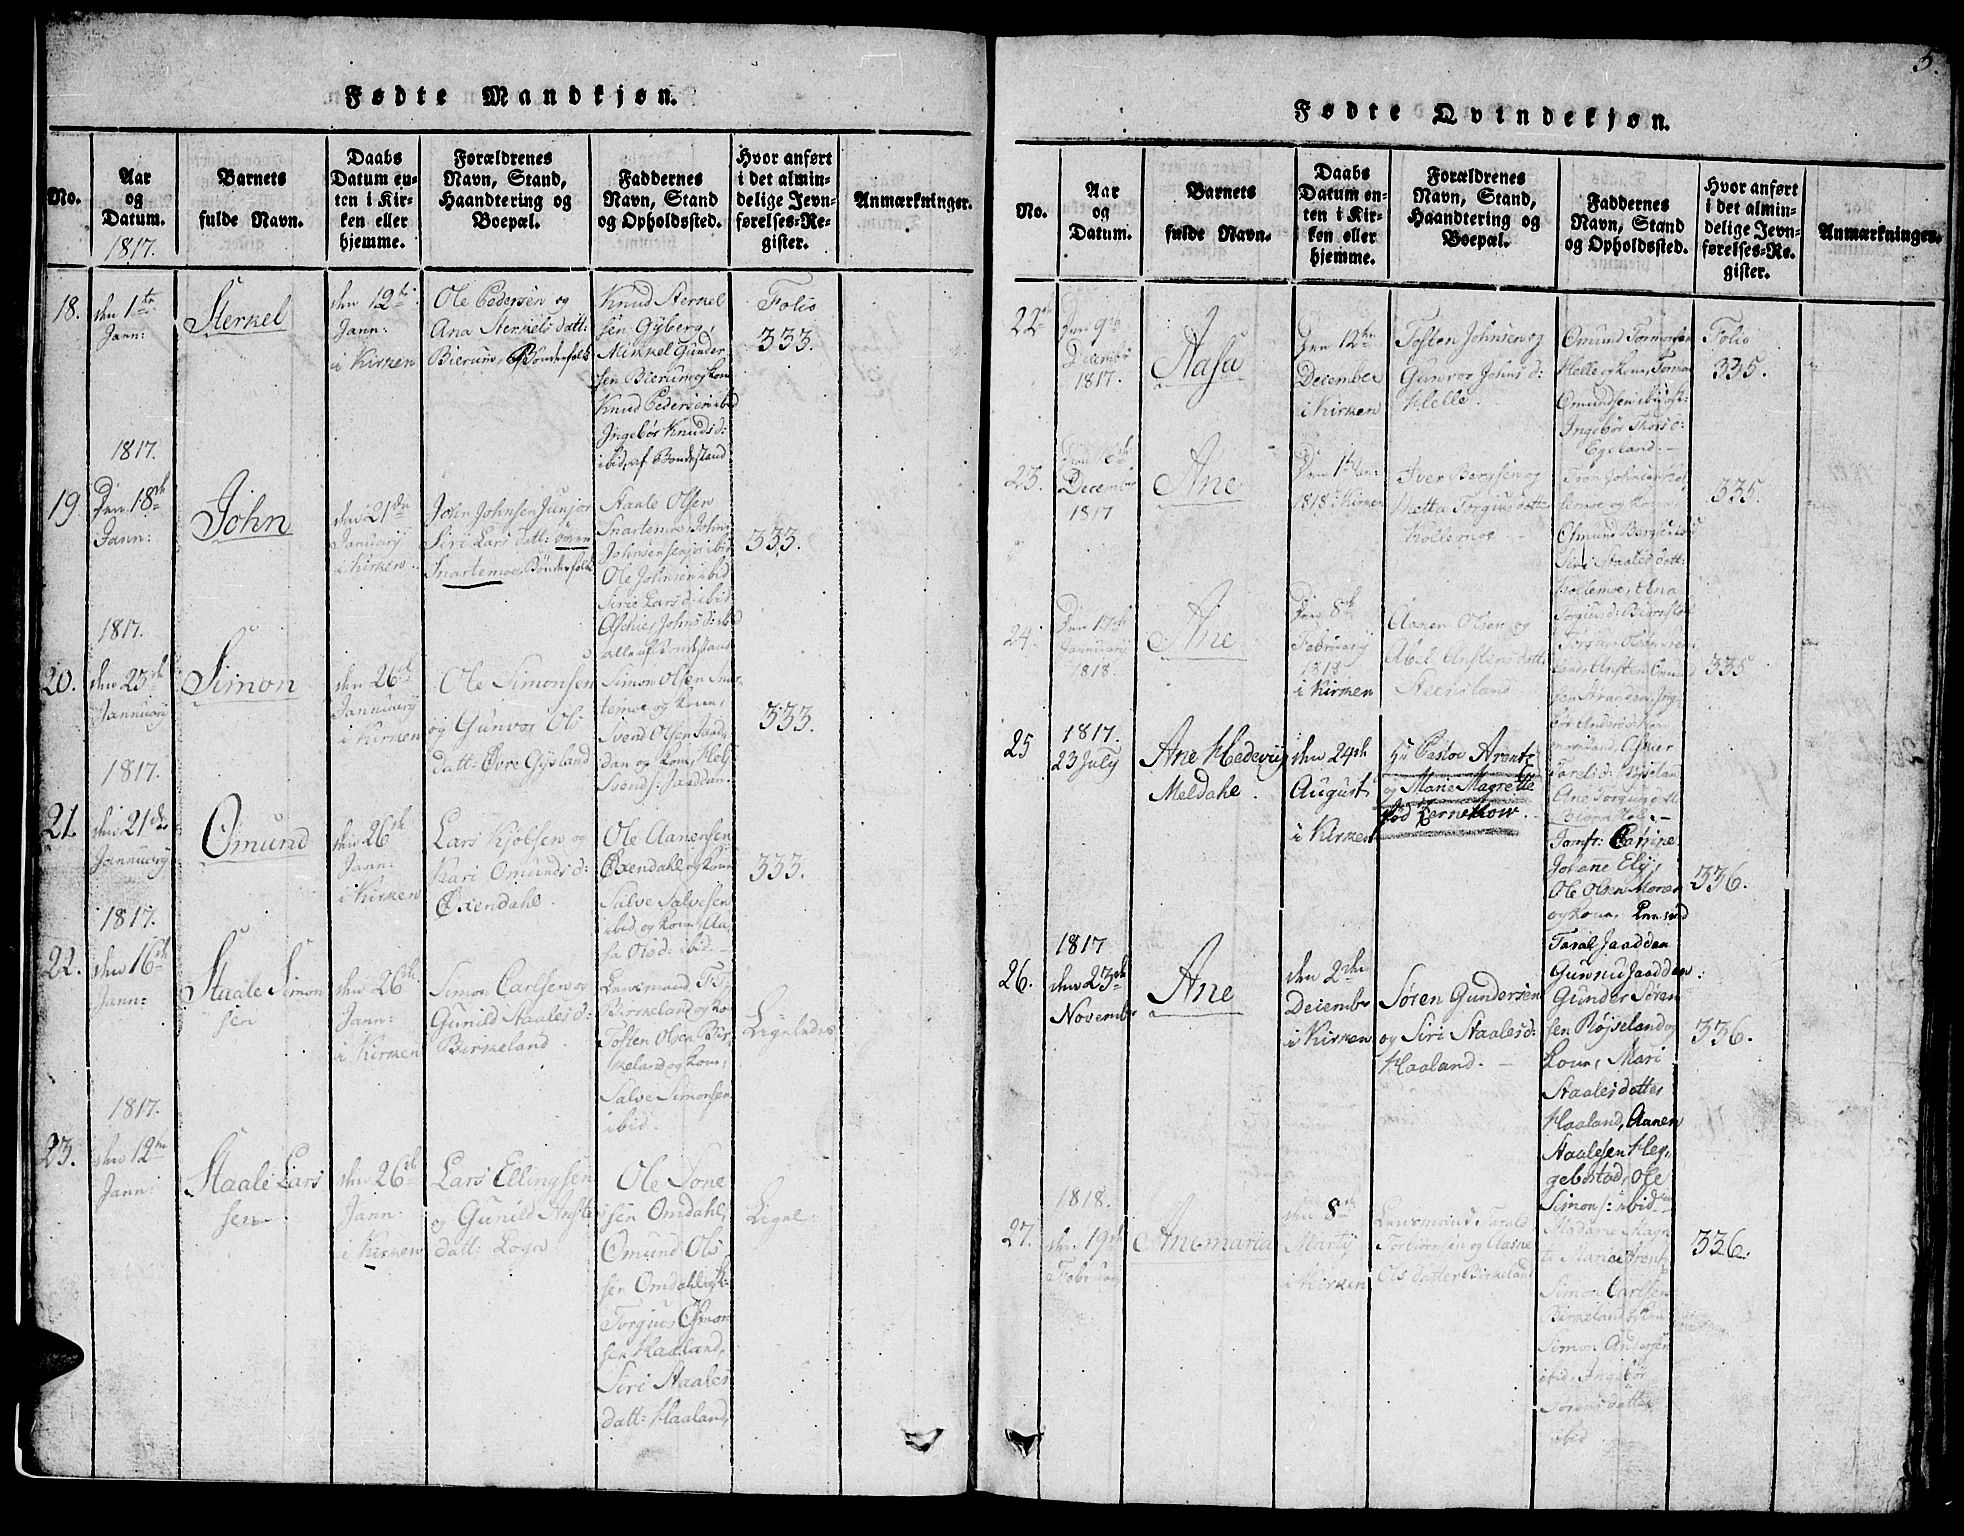 5.
Fødte Mandkjøn.
No.
Aar
og
Datum.
1817.
Barnets
fulde Navn.
Daabs
Datum en-
ten i Kir-
ken eller
hjemme.
Forældrenes
Navn, Stand,
Haandtering og
Boepæl.
Faddernes
Navn, Stand
og Opholdssted.
Hvor anført
i det almin-
delige Jevn-
førelses-Re-
gister.
Anmærkninger.
18.
den 1ste
Jann:
Sterkel
den 12te
Jann:
i Kirken
Ole Pedersen og
Ana Sterkels datt:
Bierum, Bønderfolk
Knud Sterkel
sen Gyberg,
Mikkel Gunder
sen Bierum og kone
Knud Pedersen ibid
Ingebor Knuds d:
ibid, af Bondestand
Folio
333.
1817.
19.
Den 18de
Jann:
John
den 21de
Januarij
i Kirken
John Johnsen Junjor
Siri Lars datt: øvre
Snartemoe, Bønderfolk
Staale Olsen
Snartemoe, John
Johnsen senjor ibid
Ole Johnsen ibid
Sirie Lars d: ibid
Johns d: ibid
alle af Bondestand
333.
1817.
20.
den 23de
Jannuarij
Simon
den 26de
Jannuarij
i Kirken
Ole Simonsen
og Gunvor Ols
datt: Øvre Gysland
Simon Olsen Snar
temoe og kone,
Svend Olsen Jaad
dan og kone, Hels
Svends: Jaaddan.
333.
1817.
21.
den 21de
Jannuarij
Omund
den 26de
Jann:
i Kirken
Lars Kjølsen og
Kari Omunds d:
Øxendahl.
Ole Aanensen
Øxendahl og kone
Salve Salvesen
ibid, og kone, Aa,
sa Ols d: ibid.
333.
1817.
22.
den 16de
Jann:
Staale Simon
sen
den 26de
Jann:
i Kirken
Simon Carlsen og
Gunild Staales d:
Birkeland
Lensmand T. T.
Birkeland og ko
Tosten Olsen Bir,
keland og kone,
Salve Simonsen
ibid.
Ligeledes
1817.
23.
den 12te
Jann:
Staale Lars
sen
den 26de
Jann:
i Kirken
Lars Ellingsen
og Gunild Anste
datt: Logn
Ole Tone
sen Omdahl,
Omund Ols
sen Omdahl og k:
Torgius Osmon
sen Haaland,
Siri Staales
datt: Haaland,
Ligel:
Fødte Qvindekjøn.
No.
Aar
og
Datum.
Barnets
fulde Navn.
Daabs
Datum en-
ten i Kir-
ken eller
hjemme.
Forældrenes
Navn, Stand,
Haandtering og
Boepæl.
Faddernes
Navn, Stand
og Opholdssted.
Hvor anført
i det almin-
delige Jevn-
førelses-Re-
gister.
Anmærkninger.
22
Den 9de
December
1817.
Aasa
Den 12te
December
i Kirken
Tosten Johnsen og
Gunvor Johns d:
Helle.
Omund Tormodsen
Helle og kone, Tormo
Omundsen ibid
Ingebor Thors d:
Egeland.
Folio
335.
23.
December
1817
Ane
Den 1 Jan:
1818 i Kirken
Iver Bergsen og
Metta Torgius datt:
Kollemoe
Tron Johnsen Kol,
lemoe og kone
Omund Bergsen
Siri Staales datt:
Kollemoe, Ana
Torgius d: Biørnskol
335.
24.
Den 17de
Jannuarij
1818.
Ane
Den 8de
Februarij
1818
i Kirken
Aanen Olsen og
Abel Anstens datt:
Steensland
Torstan Olsen
land, Ansten Omund
Taralsd:
Ane Torgius datt:
Biørnskol.
335
25
1817.
23 July
Ane Hedevig
Meldahl.
den 24de
August
i Kirken
Hr Pastor Arentz
og Marie Magrette
fød Zernekow.
Jomfr: Catrine
Johane Ely,
Ole Olsen Moran
og kone,
Taral Jaadden
336.
1817
26.
den 23de
November
Ane
den 2den
December
i Kirken
Søren Gundersen
og Siri Staales d:
Haaland.
Gunnu Jaadden:
Gunder Søren
sen Røjseland og
kone, Mari
Staalesdatter
Haaland, Aanen
Staalesen Heg,
gebstad, Ole
Simons: ibid
336.
1818.
27.
den 19de
Februarij
Ane maria
den 8de
Martij
i Kirken
Lensmand Tarald
Torbiørnsen og Aasne
Ols datter Birkeland
Madame Magre
te Maria Arentz
Simon Carlsen
Birkeland og kone
Simon Andersen
ibid, Ingebor
Sørensdatter
ibid
336.